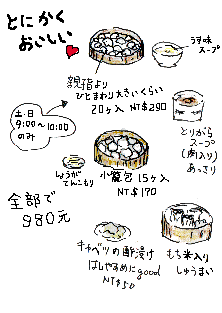 とにかく
おいしい
うす味
スープ
親指より
ひとまわり大きいくらい
20ヶ入 NT$290
土・日
9:00~10:00
のみ
とりがら
スープ
(肉入り)
あっさり
しょうが
てんこもり
小籠包 15ヶ入
NT$170
全部で
980元
キャベツの酢漬け
はしやすめにgood
NT$50
もち米入り
しゅうまい